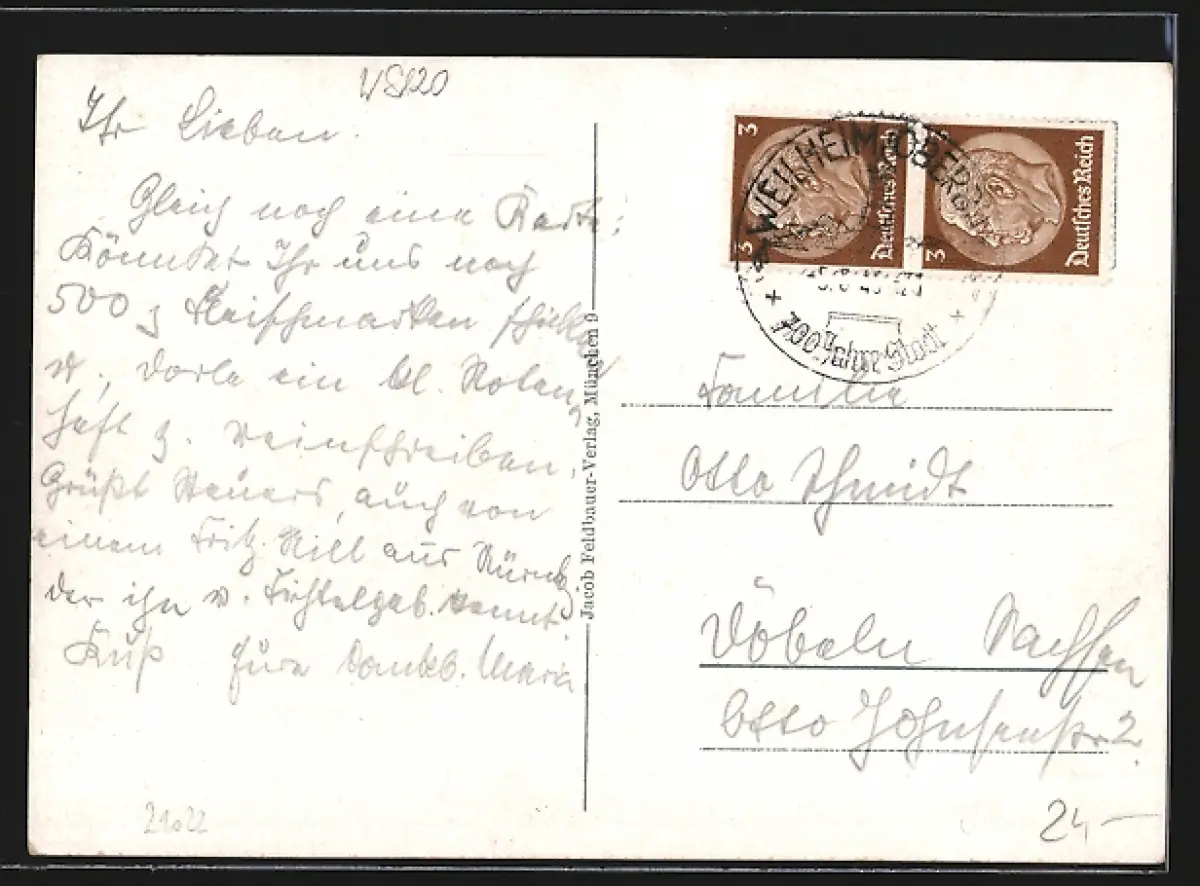 VS120
Ihr Lieben.
Gleich noch eine Karte:
Könntet Ihr uns noch
500 g Fleischmarken schicken
u. Dorle ein kl. Noten-
heft z. reinschreiben.
Grüßt Steuers, auch von
einem Fritz Hill aus Nürnbg.
der ihn v. Fichtelgeb. kennt.
Kuß Eure dankb. Maria
21022
Jacob Feldbauer-Verlag, München 9
3 3 Deutsches Reich
3 Deutsches Reich
WEILHEIM OBERBAY
700 Jahre Stadt
Familie
Otto Schmidt
Döbeln Sachsen
Otto Johnsenstr 2.
24 –